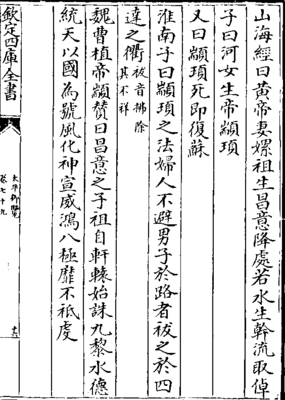 山海經曰黃帝妻嫘祖生昌意降處若水生幹流取倬
子曰河女生帝顓頊
又曰顓頊死即復蘇
淮南子曰顓頊之法婦人不避男子於路者祓之於四
達之衢祓音拂除其不祥
魏曹植帝顓贊曰昌意之子祖自軒轅始誅九黎水德
統天以國為號風化神宣威鴻八極靡不祗虔
欽定四庫全書
太平御覽
卷七十九